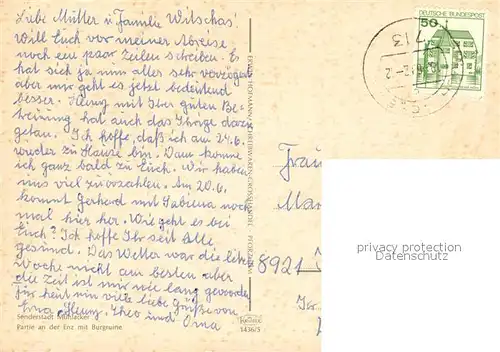 Liebe Mutter u Familie Witschas!
Will Euch vor meiner Abreise
noch ein paar Zeilen schreiben. Es
hat sich ja nun alles sehr verzögert
aber mir geht es jetzt bedeutend
besser. Heinz mit Ihrer guten Be-
treuung hat auch das Übrige dazu
getan. Ich hoffe, daß ich am 24.6.
wieder zu Hause bin. Dann komme
ich ganz bald zu Euch. Wir haben
uns viel zu erzählen. Am 20.6.
kommt Gerhard mit Sabine noch
mal hier her. Wie geht es bei
Euch? Ich hoffe Ihr seit Alle
gesund. Das Wetter war die letzte
Woche nicht am besten aber
die Zeit ist mir nie lang geworden
für heut nun viele liebe Grüße von
Erna, Heinz, Theo und Oma
Senderstadt Mühlacker
Partie an der Enz mit Burgruine
KRÜGER
1436/5
ERWIN HOFMANN SCHREIBWAREN-GROSSHANDEL PFORZHEIM
DEUTSCHE BUNDESPOST
50
713
Frau
Mar
8921
privacy protection
Datenschutz